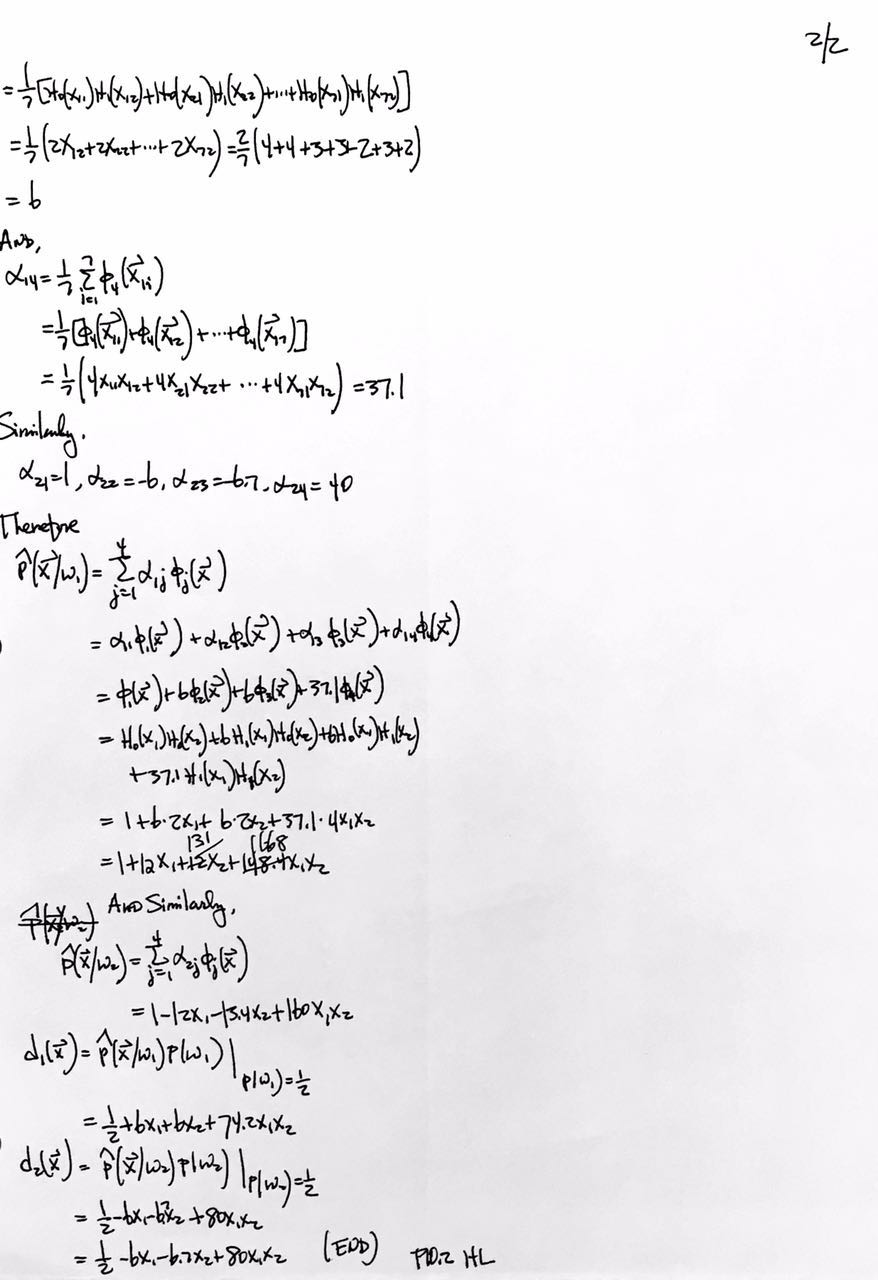 2/2
= 1/7 [H₀(x₁₁)H₁(x₁₂)+H₀(x₂₁)H₁(x₂₂)+⋯+H₀(x₇₁)H₁(x₇₂)]
= 1/7 (2x₁₂+2x₂₂+⋯+2x₇₂) = 2/7 (4+4+3+3+2+3+2)
= 6
And,
α₁₄ = 1/7 Σ_{i=1}^{7} ϕ₄(x⃗₁ᵢ)
= 1/7 [ϕ₄(x⃗₁₁)+ϕ₄(x⃗₁₂)+⋯+ϕ₄(x⃗₁₇)]
= 1/7 (4x₁₁x₁₂+4x₂₁x₂₂+ ⋯+4x₇₁x₇₂) = 37.1
Similarly,
α₂₁=1, α₂₂=-6, α₂₃=-6.7, α₂₄=40
Therefore
p̂(x⃗/ω₁) = Σ_{j=1}^{4} α₁ⱼ ϕⱼ(x⃗)
= α₁₁ϕ₁(x⃗)+α₁₂ϕ₂(x⃗)+α₁₃ϕ₃(x⃗)+α₁₄ϕ₄(x⃗)
= ϕ₁(x⃗)+6ϕ₂(x⃗)+6ϕ₃(x⃗)+37.1ϕ₄(x⃗)
= H₀(x₁)H₀(x₂)+6H₁(x₁)H₀(x₂)+6H₀(x₁)H₁(x₂)
+37.1H₁(x₁)H₁(x₂)
= 1+6·2x₁+6·2x₂+37.1·4x₁x₂
131 168
= 1+12x₁+12x₂+148.4x₁x₂
And Similarly,
p̂(x⃗/ω₂) = Σ_{j=1}^{4} α₂ⱼ ϕⱼ(x⃗)
= 1-12x₁-13.4x₂+160x₁x₂
d₁(x⃗) = p̂(x⃗/ω₁)p(ω₁)|_{p(ω₁)=1/2}
= 1/2+6x₁+6x₂+74.2x₁x₂
d₂(x⃗) = p̂(x⃗/ω₂)p(ω₂)|_{p(ω₂)=1/2}
= 1/2-6x₁-6.7x₂+80x₁x₂
= 1/2-6x₁-6.7x₂+80x₁x₂ (END) HL